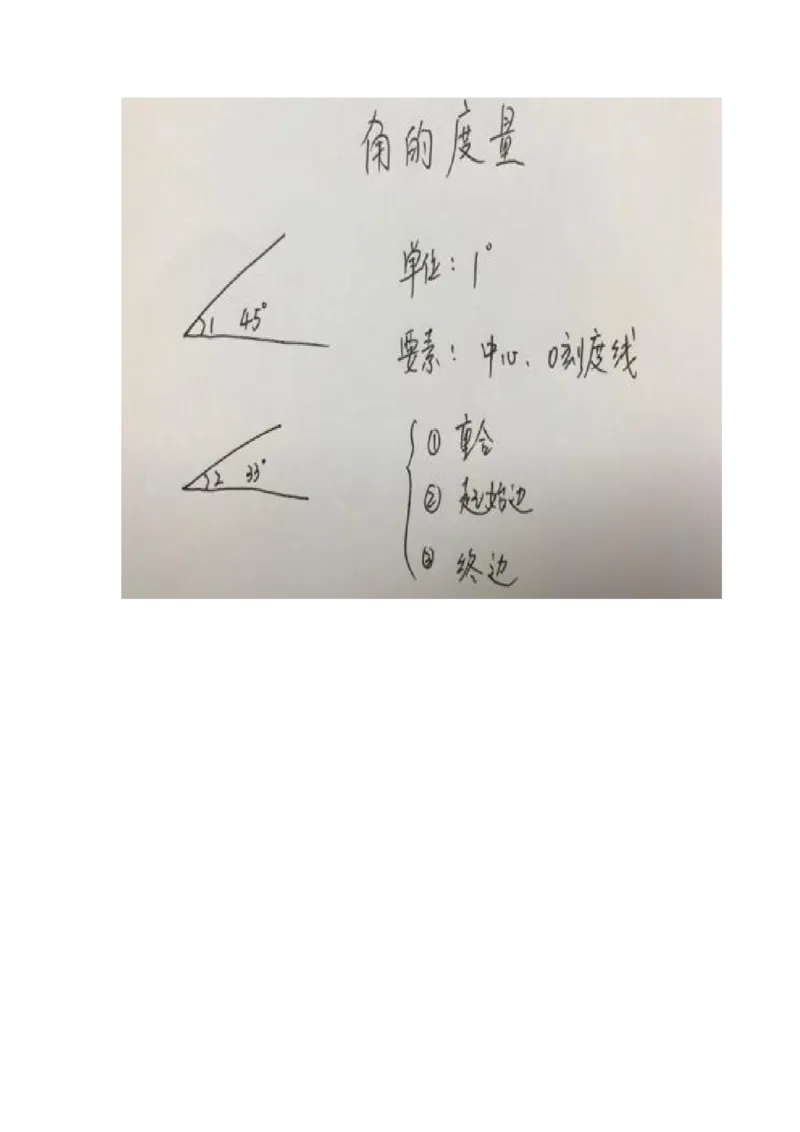 角的度量
1 45°
单位：1°
要素：中心、0刻度线
2 33°
① 重合
② 起始边
③ 终边